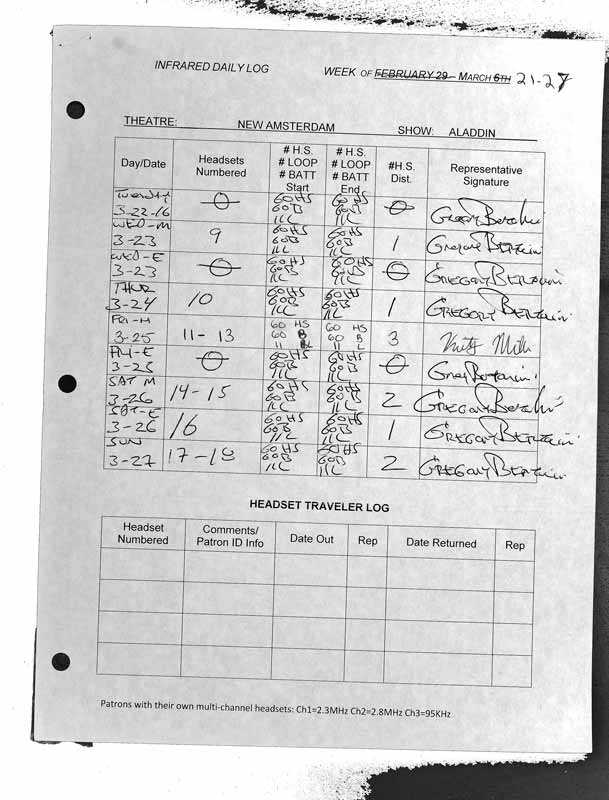 INFRARED DAILY LOG WEEK OF FEBRUARY 29 – MARCH 6TH 21-27
THEATRE: NEW AMSTERDAM SHOW: ALADDIN
Day/Date Headsets Numbered # H.S. # LOOP # BATT Start # H.S. # LOOP # BATT End #H.S. Dist. Representative Signature
3-22-16 60 HS 60B 11L 60HS 60B 11L
WED-M 3-23 9 60HS 60B 11L 60HS 60B 11L 1 GREGORY
WED-E 3-23 60HS 60B 11L 60HS 60B 11L GREGORY
THUR 3-24 10 60HS 60B 11L 60HS 60B 11L 1 GREGORY
FRI-M 3-25 11-13 60 HS 60 B 11 60 HS 60 B 11 L 3
FRI-E 3-25 60HS 60B 11L 60HS 60B 11L
SAT M 3-26 14-15 60HS 60B 11L 60HS 60B 11L 2 GREGORY
SAT-E 3-26 16 60HS 60B 11L 60HS 60B 11L 1 GREGORY
SUN 3-27 17-18 60HS 60B 11L 60HS 60B 11L 2 GREGORY
HEADSET TRAVELER LOG
Headset Numbered Comments/ Patron ID Info Date Out Rep Date Returned Rep
Patrons with their own multi-channel headsets: Ch1=2.3MHz Ch2=2.8MHz Ch3=95KHz